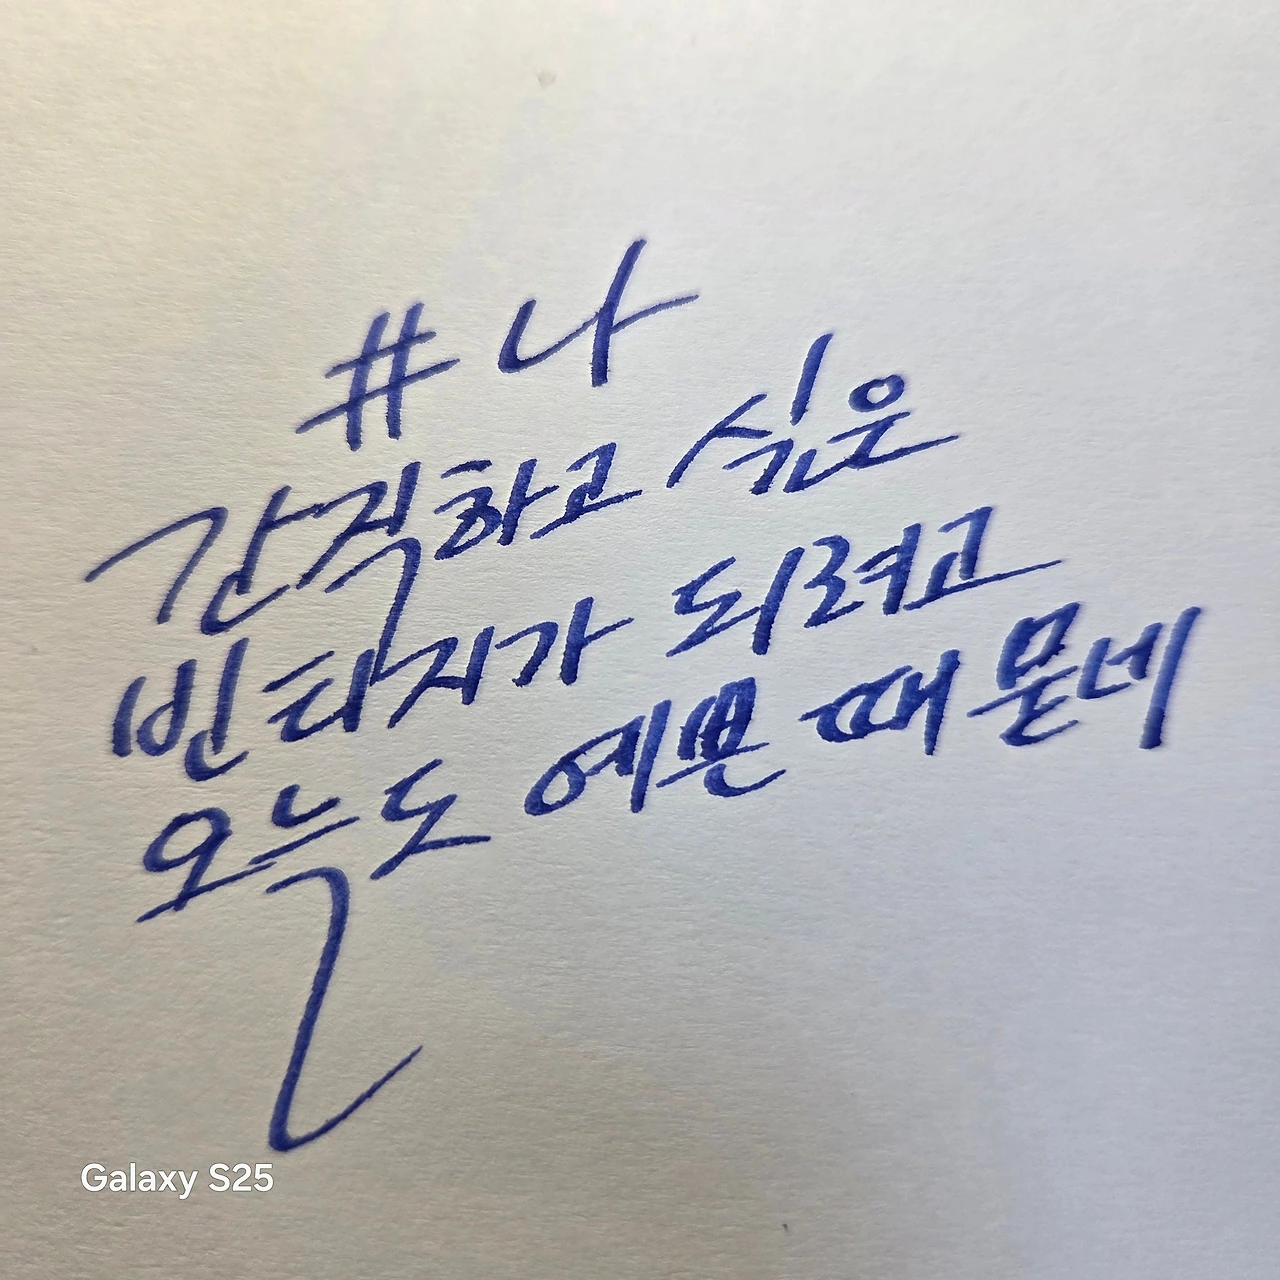 #나
간직하고 싶은
빈티지가 되려고
오늘도 예쁜 때 묻네
Galaxy S25